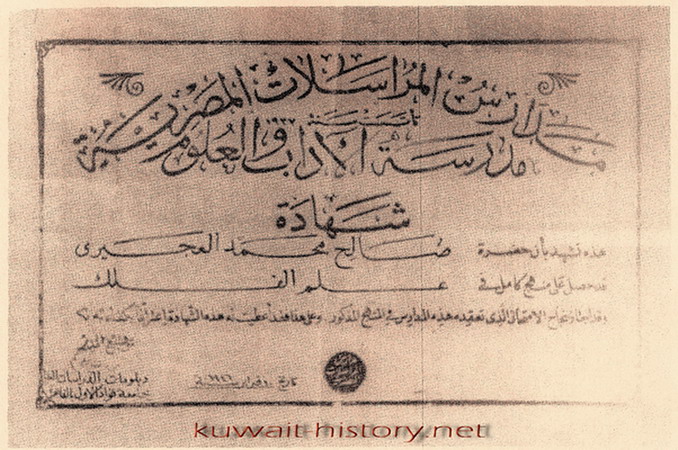 مدارس المراسلات المصرية
تأسست سنة ١٩٣٧
مدرسة الآداب والعلوم
شهادة
هذه تشهد بأن حضرة صالح محمد العجيرى
قد حصل على منهج كامل فى علم الفلك
وقد اجتاز بنجاح الامتحان الذى تعقده هذه المدارس فى المنهج المذكور وعلى هذا فقد أعطيت له هذه الشهادة اعترافا بكفاءته
تاريخ فبراير ١٩٤٦
دبلومات الدراسات العليا
بجامعة فؤاد الأول بالقاهرة
kuwait-history.net